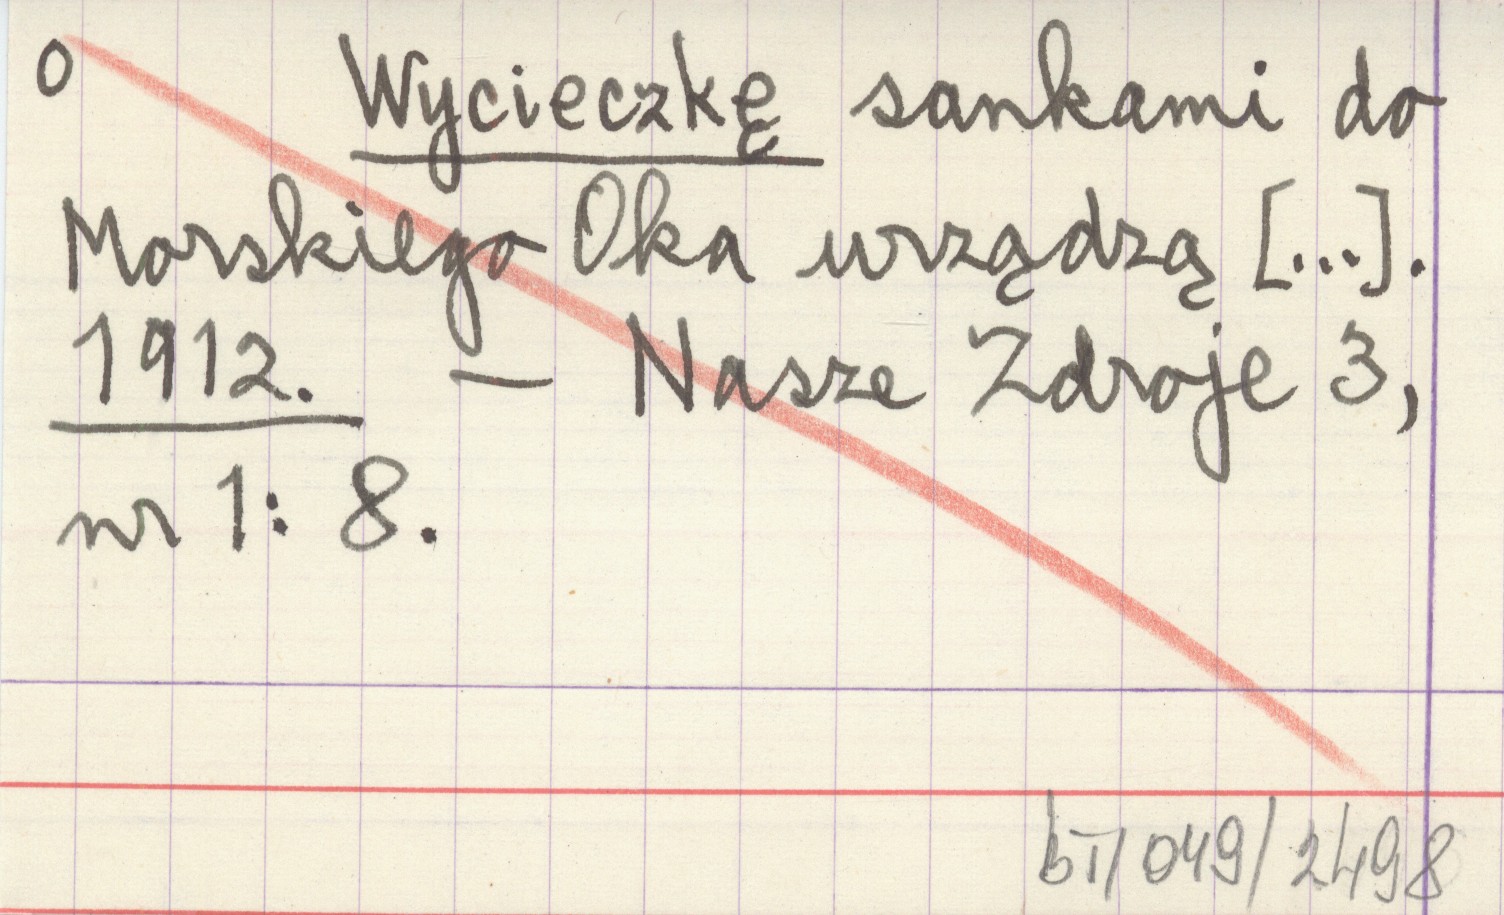 0 Wycieczkę sankami do
Morskiego Oka urządzą [...].
1912. — Nasze Zdroje 3,
nr 1: 8.
bT/049/2498